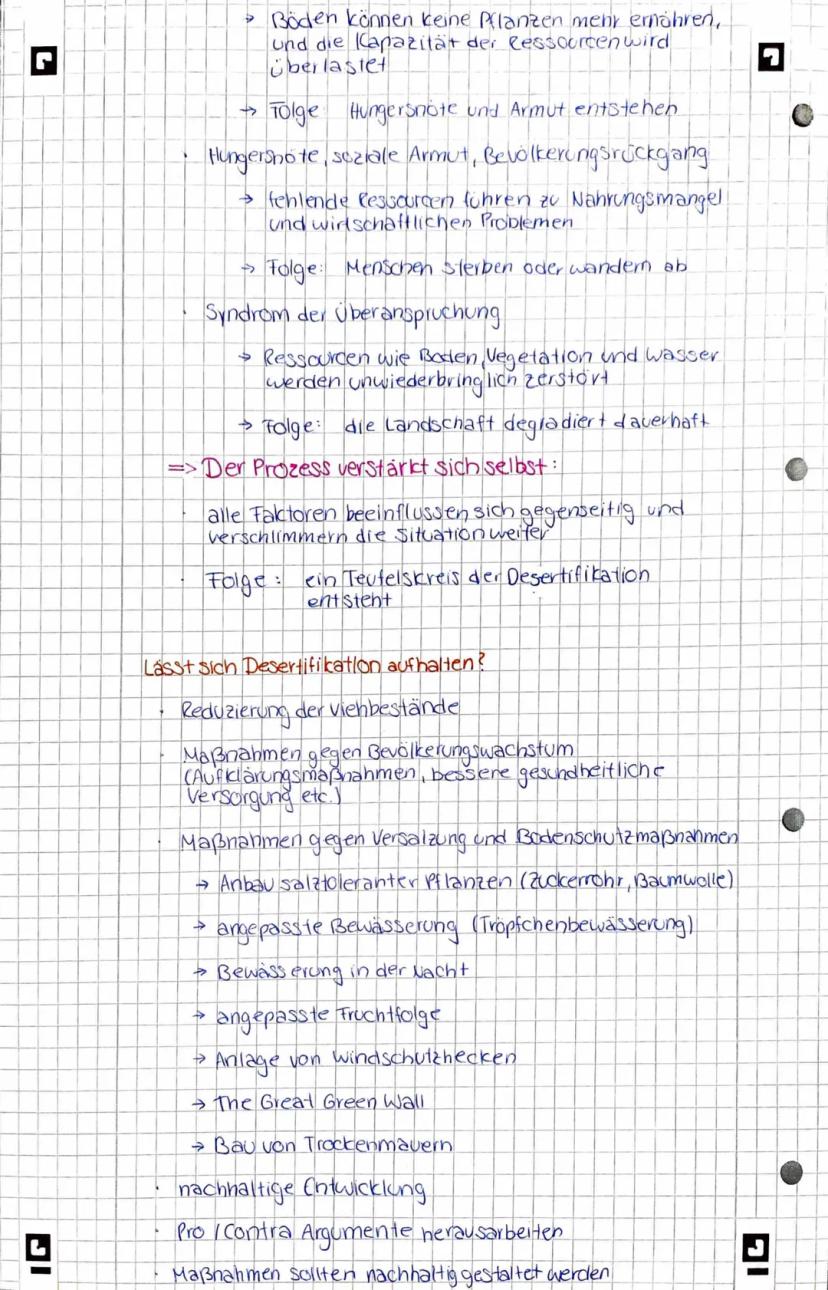 → Böden können keine Pflanzen mehr ernähren,
und die Kapazität der Ressourcen wird
überlastet
→ Folge: Hungersnöte und Armut entstehen
· Hungersnöte, soziale Armut, Bevölkerungsrückgang
→ fehlende Ressourcen führen zu Nahrungsmangel
und wirtschaftlichen Problemen
→ Folge: Menschen sterben oder wandern ab
· Syndrom der Überanspruchung
→ Ressourcen wie Boden, Vegetation und Wasser
werden unwiederbringlich zerstört
→ Folge: die Landschaft degradiert dauerhaft
=> Der Prozess verstärkt sich selbst:
· alle Faktoren beeinflussen sich gegenseitig und
verschlimmern die Situation weiter
· Folge: ein Teufelskreis der Desertifikation
entsteht
Lässt sich Desertifikation aufhalten?
· Reduzierung der Viehbestände
· Maßnahmen gegen Bevölkerungswachstum
(Aufklärungsmaßnahmen, bessere gesundheitliche
Versorgung etc.)
· Maßnahmen gegen Versalzung und Bodenschutzmaßnahmen
→ Anbau salztoleranter Pflanzen (Zuckerrohr, Baumwolle)
→ angepasste Bewässerung (Tröpfchenbewässerung)
→ Bewässerung in der Nacht
→ angepasste Fruchtfolge
→ Anlage von Windschutzhecken
→ The Great Green Wall
→ Bau von Trockenmauern
· nachhaltige Entwicklung
· Pro / Contra Argumente herausarbeiten
· Maßnahmen sollten nachhaltig gestaltet werden